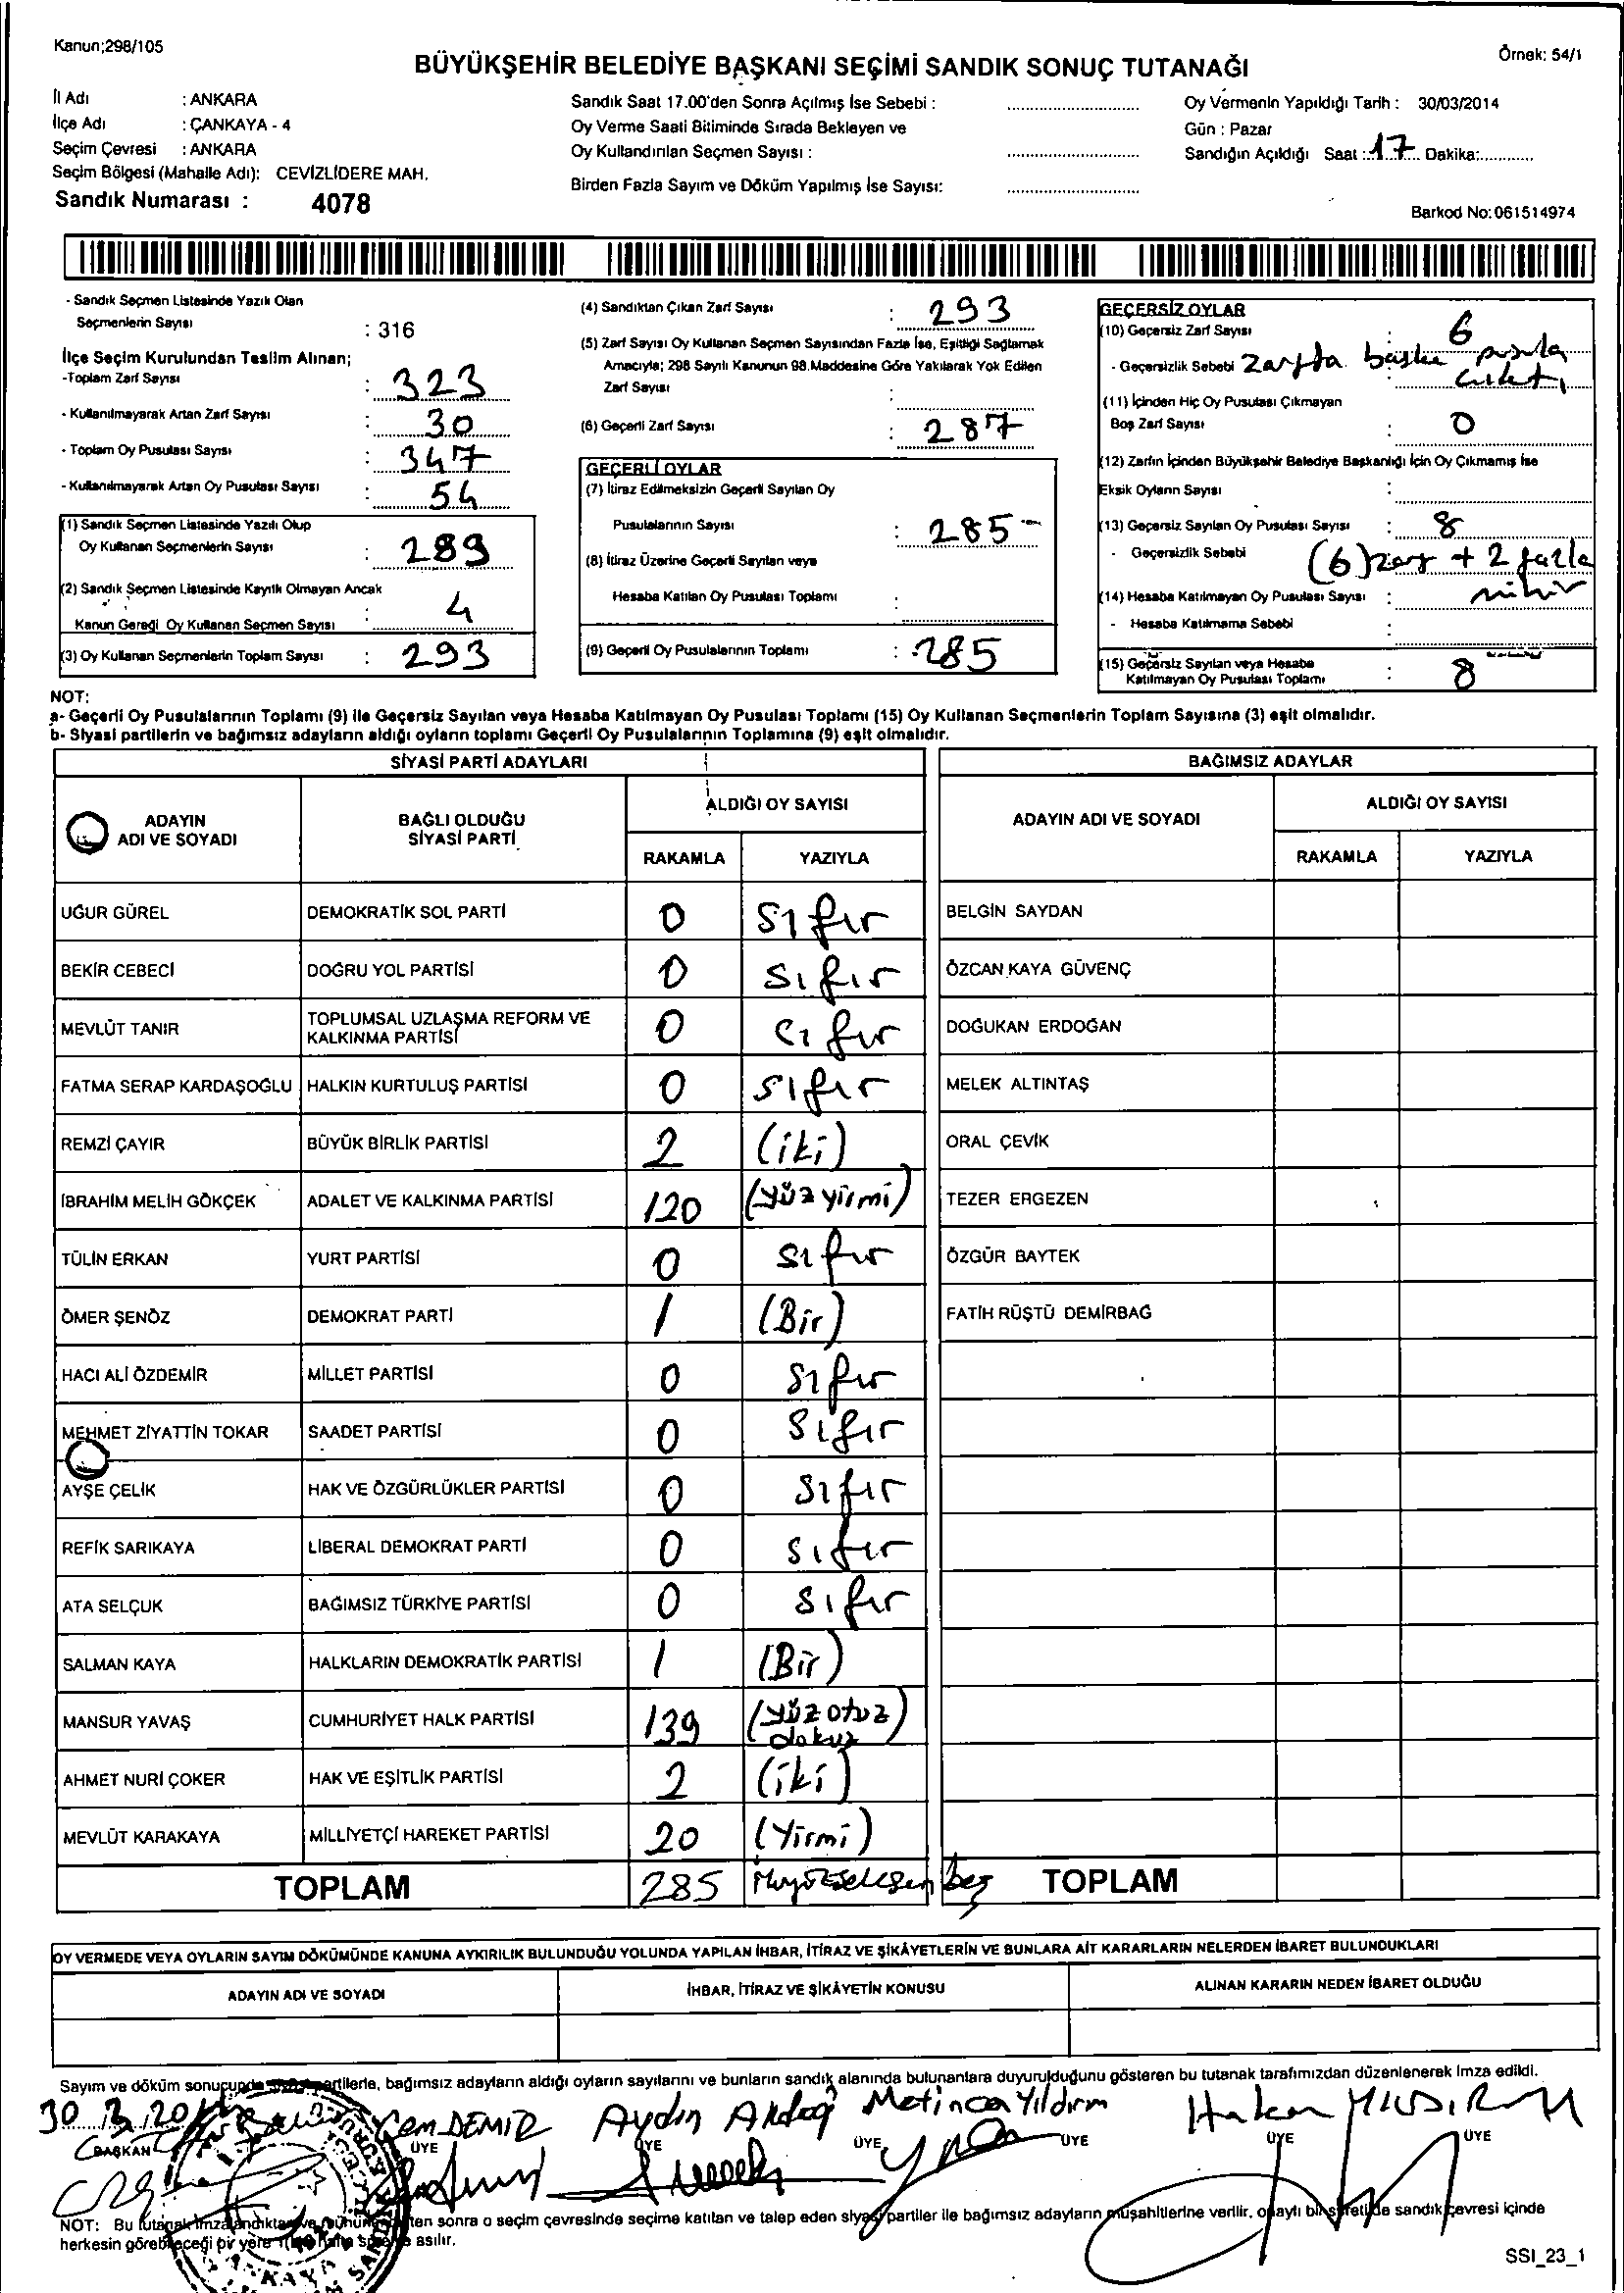 Kanun;298/105
Örnek: 54/1
BÜYÜKŞEHİR BELEDİYE BAŞKANI SEÇİMİ SANDIK SONUÇ TUTANAĞI
İl Adı : ANKARA
İlçe Adı : ÇANKAYA - 4
Seçim Çevresi : ANKARA
Seçim Bölgesi (Mahalle Adı): CEVİZLİDERE MAH.
Sandık Numarası : 4078
Sandık Saat 17.00'den Sonra Açılmış İse Sebebi :
Oy Verme Saati Bitiminde Sırada Bekleyen ve
Oy Kullandırılan Seçmen Sayısı :
Birden Fazla Sayım ve Döküm Yapılmış İse Sayısı:
Oy Vermenin Yapıldığı Tarih : 30/03/2014
Gün : Pazar
Sandığın Açıldığı Saat : 17 Dakika:
Barkod No:061514974
- Sandık Seçmen Listesinde Yazılı Olan
Seçmenlerin Sayısı : 316
İlçe Seçim Kurulundan Teslim Alınan;
-Toplam Zarf Sayısı : 323
- Kullanılmayarak Artan Zarf Sayısı : 30
- Toplam Oy Pusulası Sayısı : 347
- Kullanılmayarak Artan Oy Pusulası Sayısı : 54
(1) Sandık Seçmen Listesinde Yazılı Olup
Oy Kullanan Seçmenlerin Sayısı : 289
(2) Sandık Seçmen Listesinde Kayıtlı Olmayan Ancak
Kanun Gereği Oy Kullanan Seçmen Sayısı : 4
(3) Oy Kullanan Seçmenlerin Toplam Sayısı : 293
(4) Sandıktan Çıkan Zarf Sayısı : 293
(5) Zarf Sayısı Oy Kullanan Seçmen Sayısından Fazla İse, Eşitliği Sağlamak
Amacıyla; 298 Sayılı Kanunun 98.Maddesine Göre Yakılarak Yok Edilen
Zarf Sayısı :
(6) Geçerli Zarf Sayısı : 287
GEÇERLİ OYLAR
(7) İtiraz Edilmeksizin Geçerli Sayılan Oy
Pusulalarının Sayısı : 285
(8) İtiraz Üzerine Geçerli Sayılan veya
Hesaba Katılan Oy Pusulası Toplamı :
(9) Geçerli Oy Pusulalarının Toplamı : 285
GEÇERSİZ OYLAR
(10) Geçersiz Zarf Sayısı : 6
- Geçersizlik Sebebi Zarfta başka pusula
çıktı
(11) İçinden Hiç Oy Pusulası Çıkmayan
Boş Zarf Sayısı : 0
(12) Zarfın İçinden Büyükşehir Belediye Başkanlığı İçin Oy Çıkmamış İse
Eksik Oyların Sayısı :
(13) Geçersiz Sayılan Oy Pusulası Sayısı : 8
- Geçersizlik Sebebi (6) zarf + 2 fazla
mühür
(14) Hesaba Katılmayan Oy Pusulası Sayısı :
- Hesaba Katılmama Sebebi :
(15) Geçersiz Sayılan veya Hesaba
Katılmayan Oy Pusulası Toplamı : 8
NOT:
a- Geçerli Oy Pusulalarının Toplamı (9) ile Geçersiz Sayılan veya Hesaba Katılmayan Oy Pusulası Toplamı (15) Oy Kullanan Seçmenlerin Toplam Sayısına (3) eşit olmalıdır.
b- Siyasi partilerin ve bağımsız adayların aldığı oyların toplamı Geçerli Oy Pusulalarının Toplamına (9) eşit olmalıdır.
SİYASİ PARTİ ADAYLARI
BAĞIMSIZ ADAYLAR
ADAYIN ADI VE SOYADI
BAĞLI OLDUĞU SİYASİ PARTİ
ALDIĞI OY SAYISI
RAKAMLA YAZIYLA
ADAYIN ADI VE SOYADI
ALDIĞI OY SAYISI
RAKAMLA YAZIYLA
UĞUR GÜREL DEMOKRATİK SOL PARTİ 0 sıfır BELGİN SAYDAN
BEKİR CEBECİ DOĞRU YOL PARTİSİ 0 sıfır ÖZCAN KAYA GÜVENÇ
MEVLÜT TANIR TOPLUMSAL UZLAŞMA REFORM VE KALKINMA PARTİSİ 0 sıfır DOĞUKAN ERDOĞAN
FATMA SERAP KARDAŞOĞLU HALKIN KURTULUŞ PARTİSİ 0 sıfır MELEK ALTINTAŞ
REMZİ ÇAYIR BÜYÜK BİRLİK PARTİSİ 2 (iki) ORAL ÇEVİK
İBRAHİM MELİH GÖKÇEK ADALET VE KALKINMA PARTİSİ 120 (yüz yirmi) TEZER ERGEZEN
TÜLİN ERKAN YURT PARTİSİ 0 sıfır ÖZGÜR BAYTEK
ÖMER ŞENÖZ DEMOKRAT PARTİ 1 (Bir) FATİH RÜŞTÜ DEMİRBAĞ
HACI ALİ ÖZDEMİR MİLLET PARTİSİ 0 sıfır
MEHMET ZİYATTİN TOKAR SAADET PARTİSİ 0 sıfır
AYŞE ÇELİK HAK VE ÖZGÜRLÜKLER PARTİSİ 0 sıfır
REFİK SARIKAYA LİBERAL DEMOKRAT PARTİ 0 sıfır
ATA SELÇUK BAĞIMSIZ TÜRKİYE PARTİSİ 0 sıfır
SALMAN KAYA HALKLARIN DEMOKRATİK PARTİSİ 1 (Bir)
MANSUR YAVAŞ CUMHURİYET HALK PARTİSİ 139 (yüz otuz dokuz)
AHMET NURİ ÇOKER HAK VE EŞİTLİK PARTİSİ 2 (iki)
MEVLÜT KARAKAYA MİLLİYETÇİ HAREKET PARTİSİ 20 (Yirmi)
TOPLAM 285 İkiyüzseksen beş TOPLAM
OY VERMEDE VEYA OYLARIN SAYIM DÖKÜMÜNDE KANUNA AYKIRILIK BULUNDUĞU YOLUNDA YAPILAN İHBAR, İTİRAZ VE ŞİKÂYETLERİN VE BUNLARA AİT KARARLARIN NELERDEN İBARET BULUNDUKLARI
ADAYIN ADI VE SOYADI İHBAR, İTİRAZ VE ŞİKÂYETİN KONUSU ALINAN KARARIN NEDEN İBARET OLDUĞU
Sayım ve döküm sonucunda partilerle, bağımsız adayların aldığı oyların sayılarını ve bunların sandık alanında bulunanlara duyurulduğunu gösteren bu tutanak tarafımızdan düzenlenerek imza edildi.
30 3 20
Cem DEMİR Aydın Akdağ Metincan Yıldırım Hakan YILDIRIM
BAŞKAN ÜYE ÜYE ÜYE ÜYE ÜYE ÜYE
NOT: Bu tutanak imzalandıktan ve mühürlendikten sonra o seçim çevresinde seçime katılan ve talep eden siyasi partiler ile bağımsız adayların müşahitlerine verilir, onaylı bir sureti de sandık çevresi içinde
herkesin görebileceği bir yere bir hafta süre ile asılır.
SSI_23_1